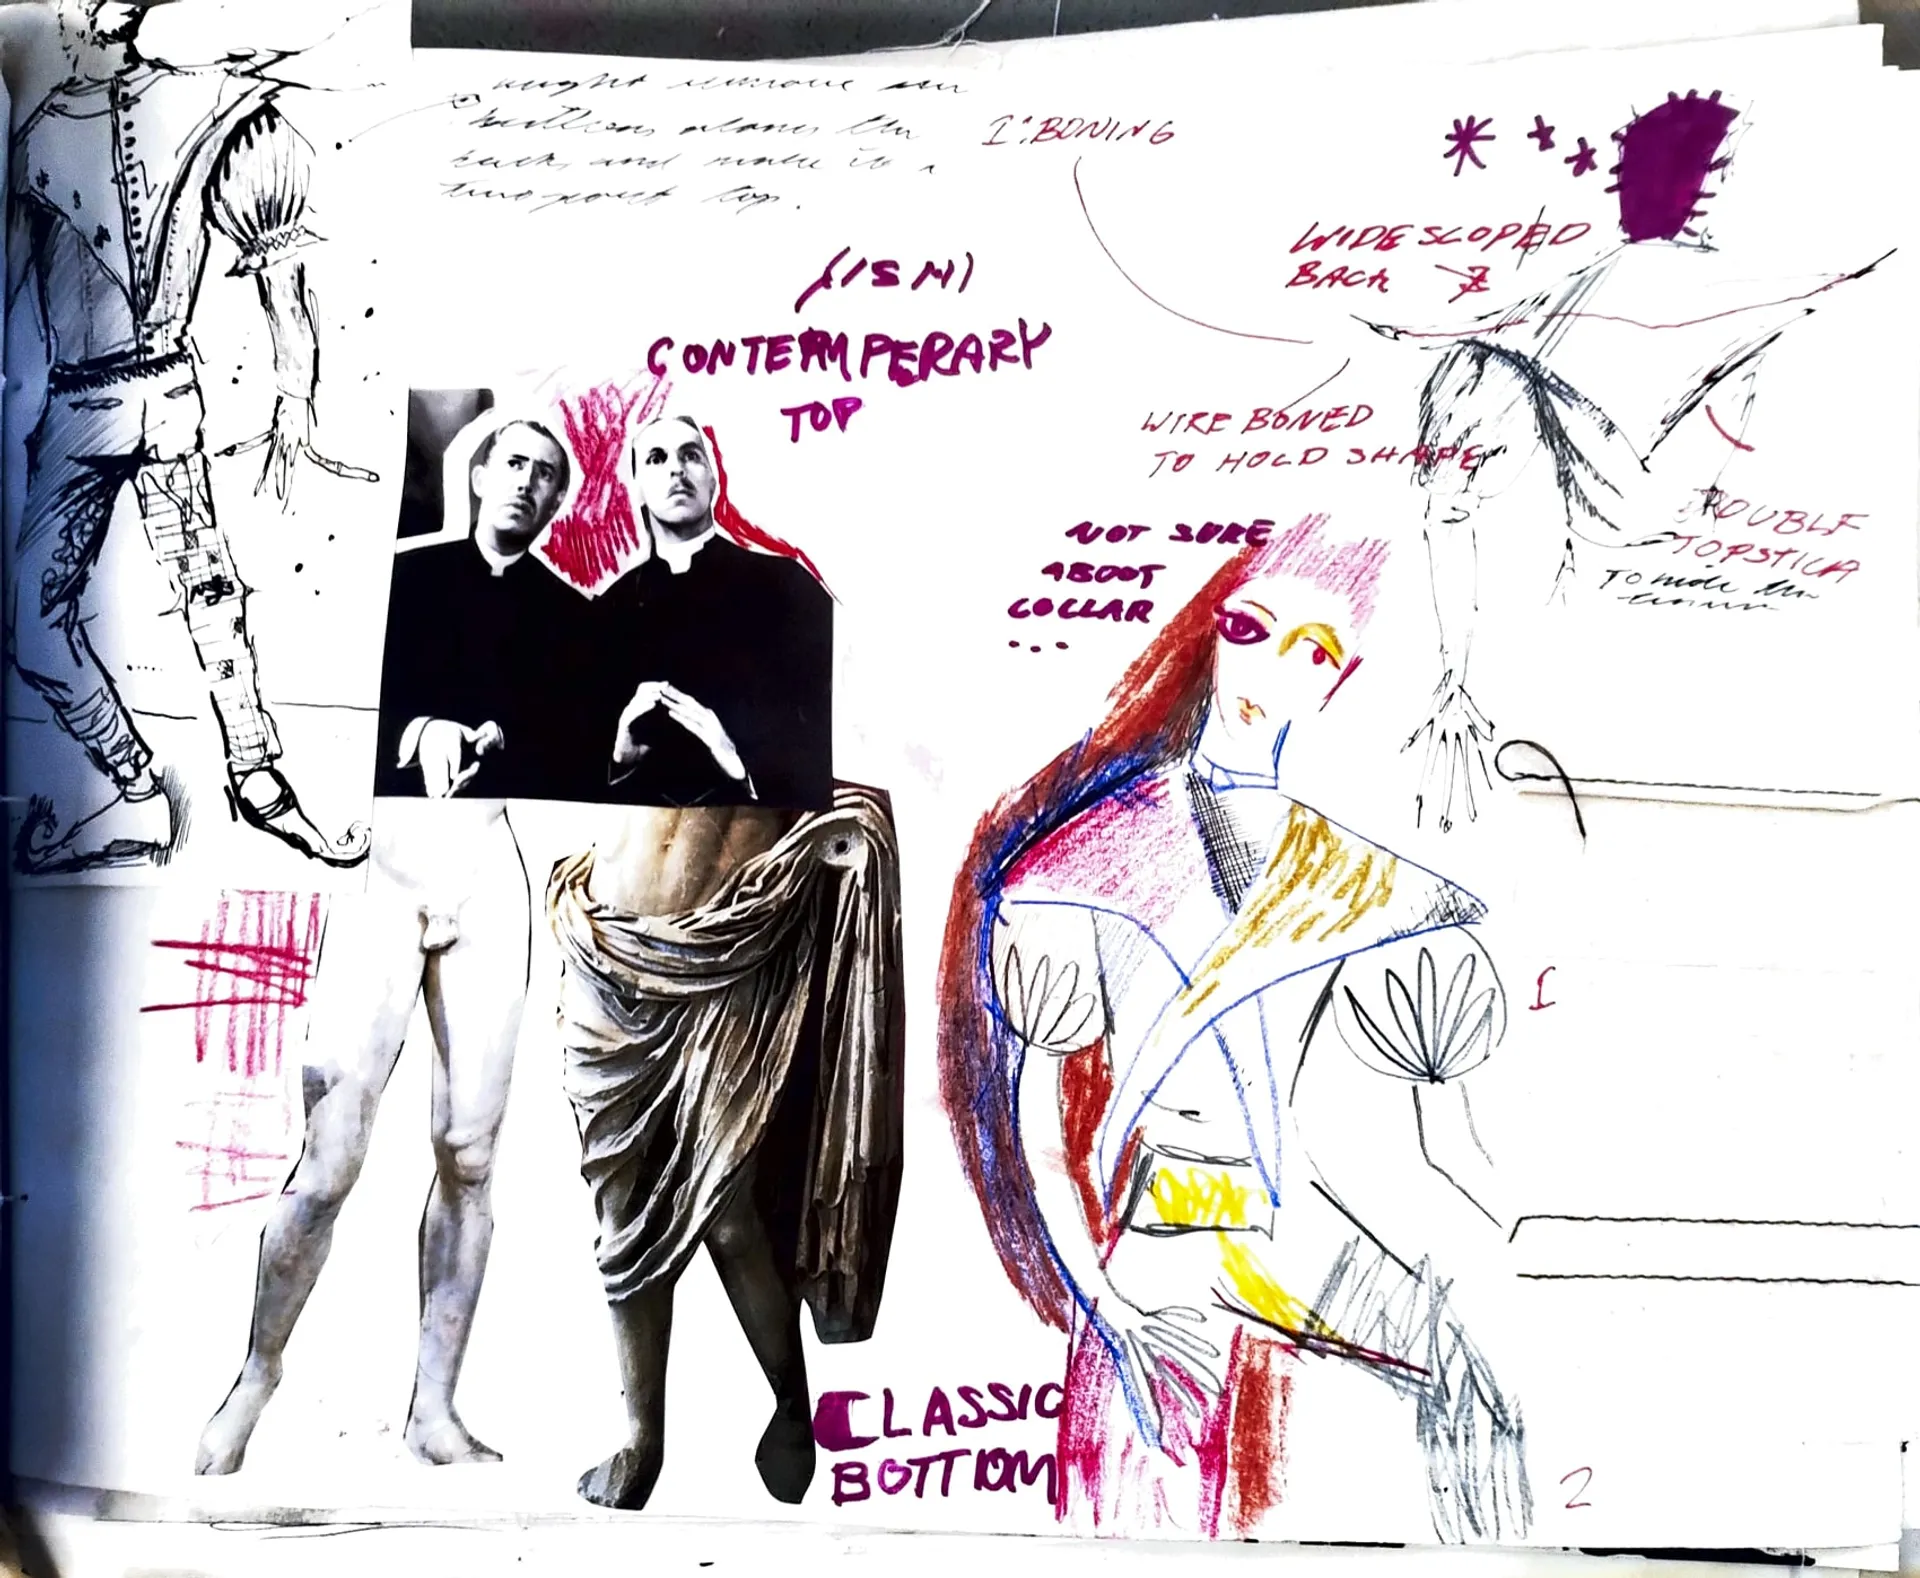 might remove
buttons along the
back, and make it a
two part top.
1: BONING
(ISM)
CONTEMPERARY
TOP
WIDE SCOPED
BACK
WIRE BONED
TO HOLD SHAPE
NOT SURE
ABOUT
COLLAR
...
DOUBLE
TOPSTICH
TO hide the
1
CLASSIC
BOTTOM
2